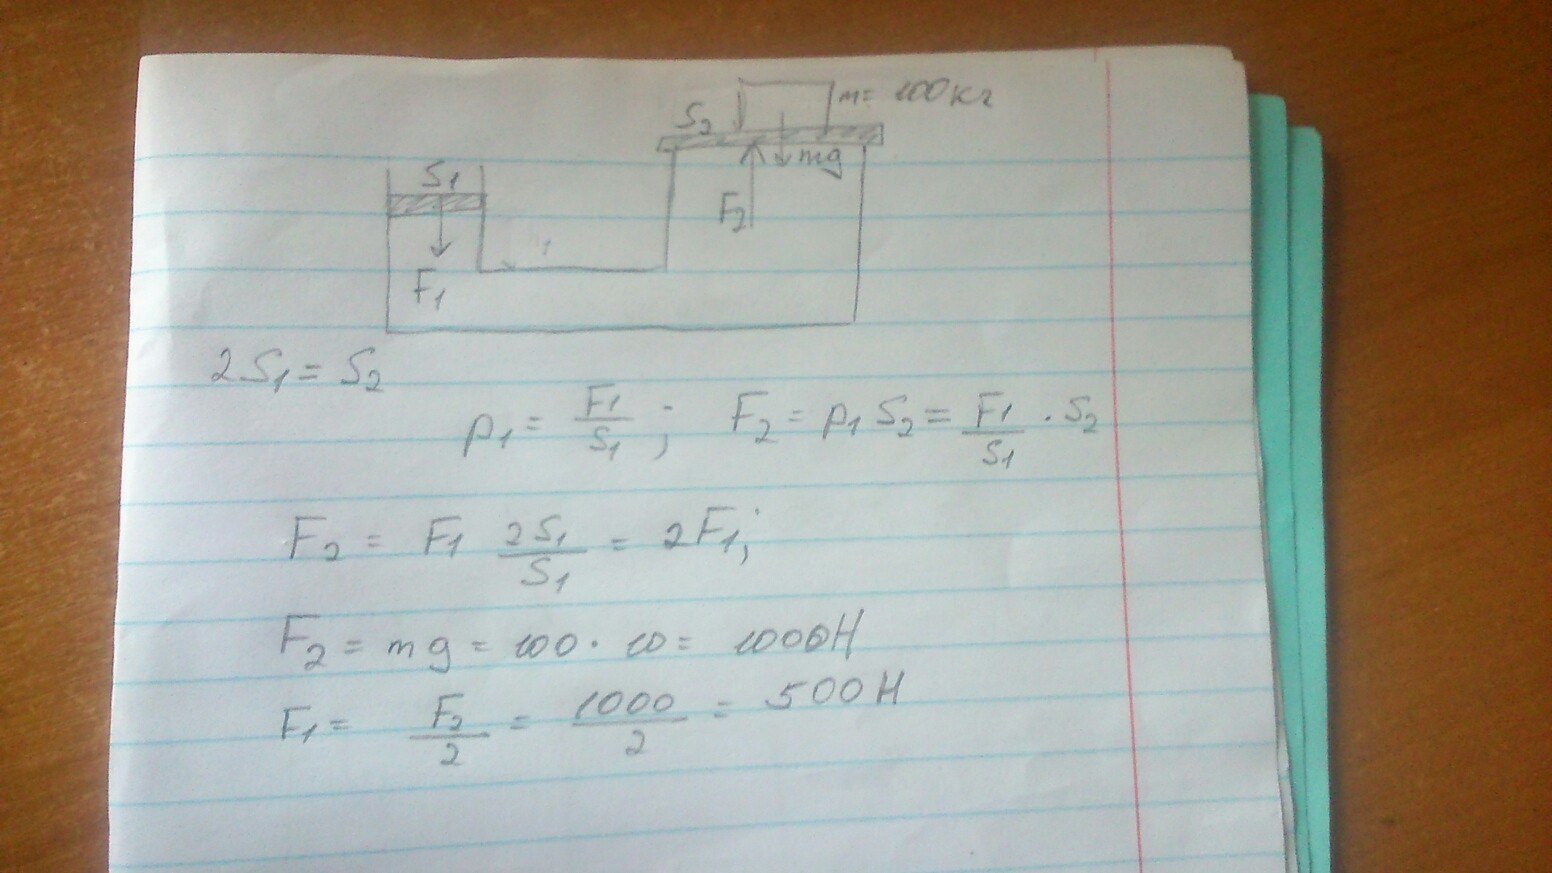 m = 100кг
S₂
mg
S₁
F₂
F₁
2S₁ = S₂
p₁ = F₁/S₁ ; F₂ = p₁ S₂ = F₁/S₁ · S₂
F₂ = F₁ 2S₁/S₁ = 2F₁;
F₂ = mg = 100 · 10 = 1000Н
F₁ = F₂/2 = 1000/2 = 500Н